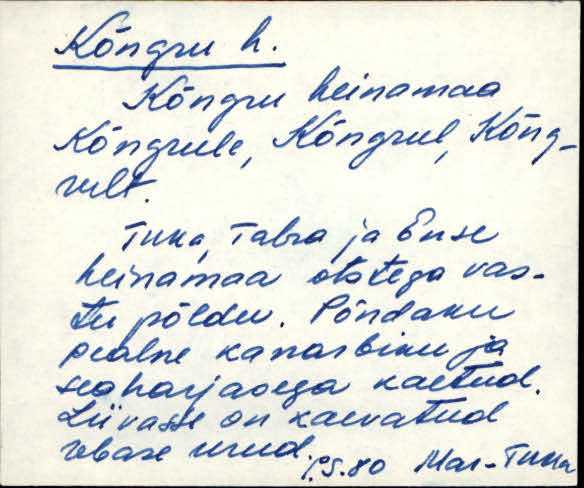 Kõngru h.
Kõngru heinamaa
Kõngrule, Kõngrul, Kõng-
rult.
Tuka, Tabra ja Ense
heinamaa otstega vas-
tu põldu. Põndaku
pealne kanarbiku ja
seaharjasega kaetud.
Liivasse on kaevatud
rebase urud.
P.S. 80 Mar-Tuka